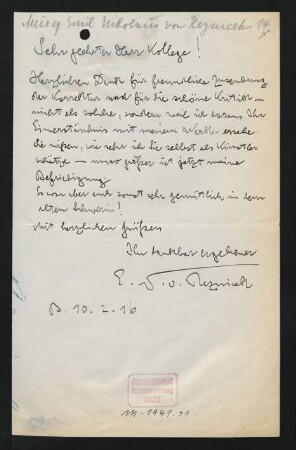 Musiq Emil Nikolaus von Reznicek 14
Sehr geehrter Herr Kollege!
Herzlichen Dank für freundliche Zusendung
der Korrektur und für die schöne Kritik –
nicht als solche, sondern weil ich daraus Ihr
Einverständnis mit meinem Werke ersehe.
Sie wissen, wie sehr ich Sie selbst als Künstler
schätze – umso größer ist jetzt meine
Befriedigung.
Es war aber auch sonst sehr gemütlich in dem
alten Schwerin!
Mit herzlichen Grüßen
Ihr dankbar ergebener
E. N. v. Reznicek
B. 10. 2. 16
Berlin
M. 1941.91